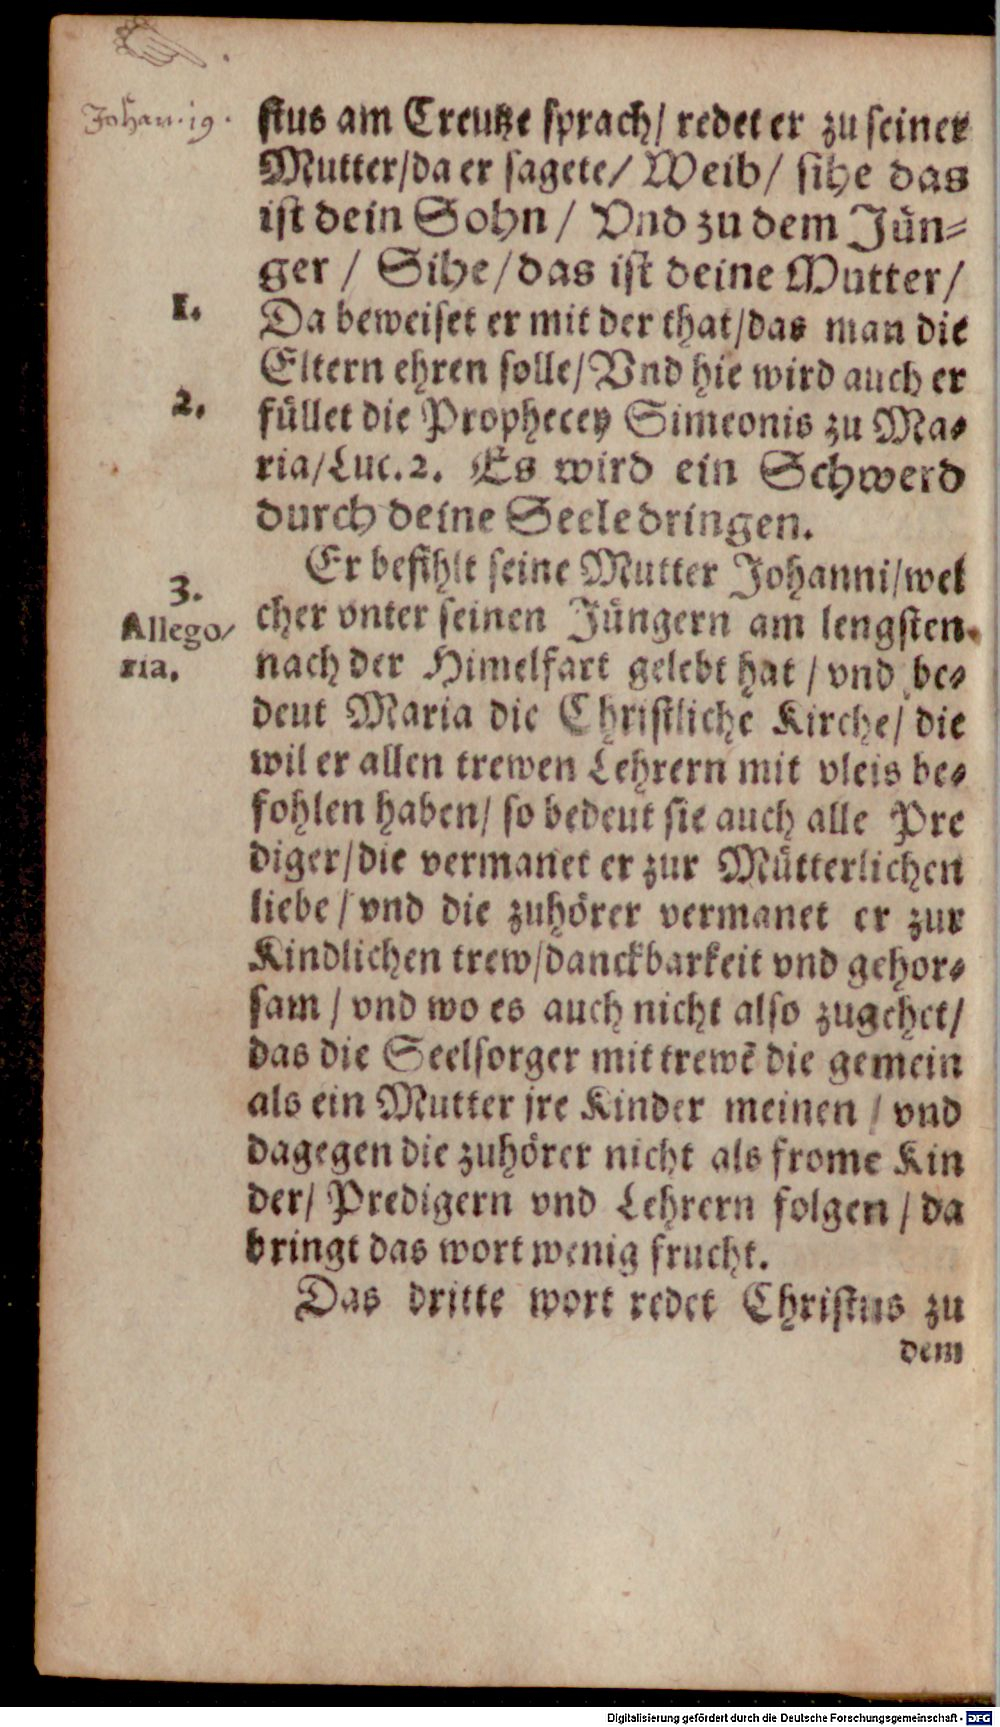 Johan. 19.
stus am Creutze sprach/ redet er zu seiner
Mutter/da er sagete/ Weib/ sihe das
ist dein Sohn / Vnd zu dem Jün-
ger / Sihe/das ist deine Mutter/
1.
Da beweiset er mit der that/das man die
Eltern ehren solle/Vnd hie wird auch er
2.
füllet die Prophecey Simeonis zu Ma-
ria/Luc.2. Es wird ein Schwerd
durch deine Seele dringen.
3.
Er befihlt seine Mutter Johanni/wel
Allego/
ria.
cher vnter seinen Jüngern am lengsten
nach der Himelfart gelebt hat / vnd be-
deut Maria die Christliche Kirche/ die
wil er allen trewen Lehrern mit vleis be-
fohlen haben/ so bedeut sie auch alle Pre
diger/die vermanet er zur Mütterlichen
liebe / vnd die zuhörer vermanet er zur
Kindlichen trew/danckbarkeit vnd gehor-
sam / vnd wo es auch nicht also zugehet/
das die Seelsorger mit trewẽ die gemein
als ein Mutter jre Kinder meinen / vnd
dagegen die zuhörer nicht als frome Kin
der/ Predigern vnd Lehrern folgen / da
bringt das wort wenig frucht.
Das dritte wort redet Christus zu
dem
Digitalisierung gefördert durch die Deutsche Forschungsgemeinschaft - DFG